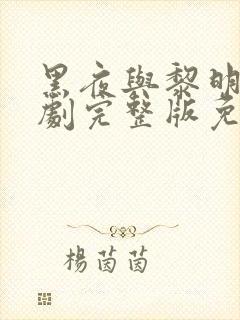 黑夜與黎明
劇完整版免
楊茵茵